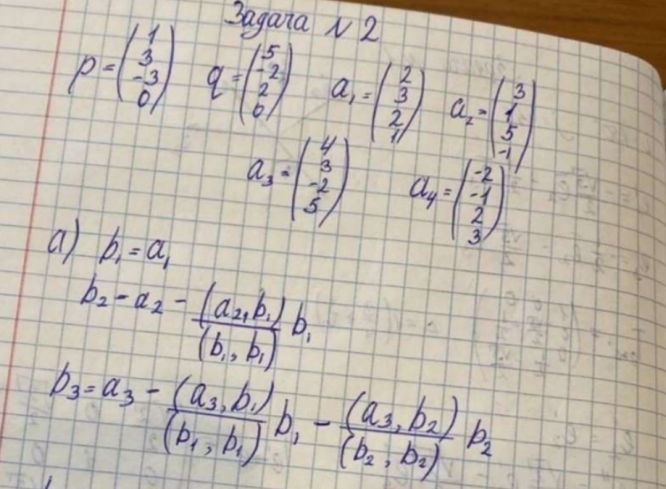 Задача №2
p = (1 3 -3 0) q = (5 -2 2 0) a₁ = (2 3 2 1) a₂ = (3 1 5 -1)
a₃ = (4 3 -2 5) a₄ = (-2 -1 2 3)
а) b₁ = a₁
b₂ = a₂ - (a₂, b₁)/(b₁, b₁) b₁
b₃ = a₃ - (a₃, b₁)/(b₁, b₁) b₁ - (a₃, b₂)/(b₂, b₂) b₂